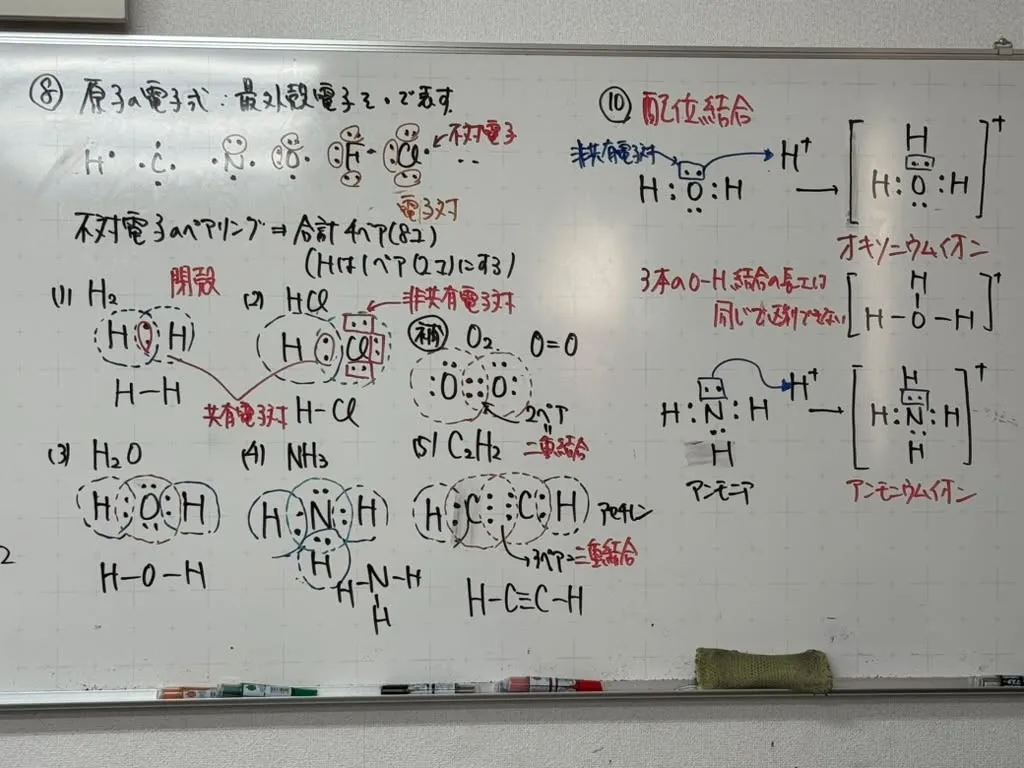 ⑧ 原子の電子式：最外殻電子を・で表す
H· ·C· ·N· ·O· ·F· ·Cl· 不対電子
電子対
不対電子のペアリング⇒合計4ペア(8コ)
(Hは1ペア(2コ)にする)
(1) H₂ 閉殻
H:H
H-H
共有電子対
(2) HCl
非共有電子対
H:Cl
H-Cl
補 O₂ O=O
:O::O:
2ペア
二重結合
(3) H₂O
H:O:H
H-O-H
(4) NH₃
H:N:H
H
H-N-H
H
(5) C₂H₂
H:C⋮⋮C:H アセチレン
→3ペア=三重結合
H-C≡C-H
⑩ 配位結合
非共有電子対
H:O:H H⁺ → [H:O:H]⁺
H
オキソニウムイオン
3本のO-H結合の長さは
同じで区別できない
H
[H-O-H]⁺
H:N:H H⁺ → [H:N:H]⁺
H
H
H
アンモニア
アンモニウムイオン
2